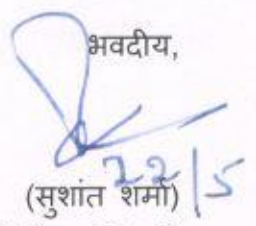 भवदीय,
22/5
(सुशांत शर्मा)